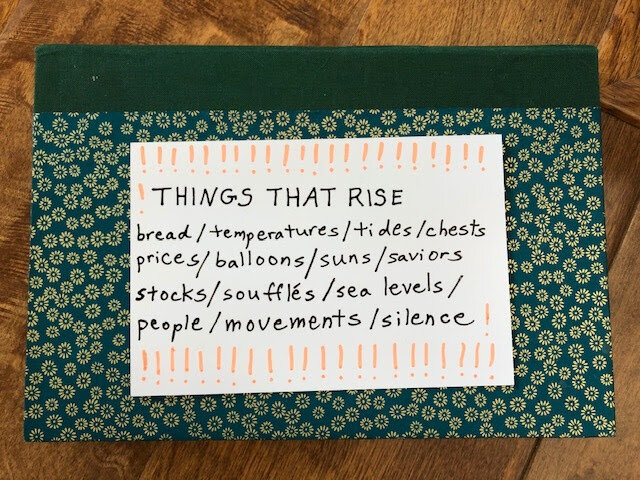 ! ! ! ! ! ! ! ! ! ! ! ! ! ! ! ! ! ! ! ! ! !
! THINGS THAT RISE
bread/temperatures/tides/chests
prices/balloons/suns/saviors
stocks/soufflés/sea levels/
people/movements/silence !
! ! ! ! ! ! ! ! ! ! ! ! ! ! ! ! ! ! ! ! ! !